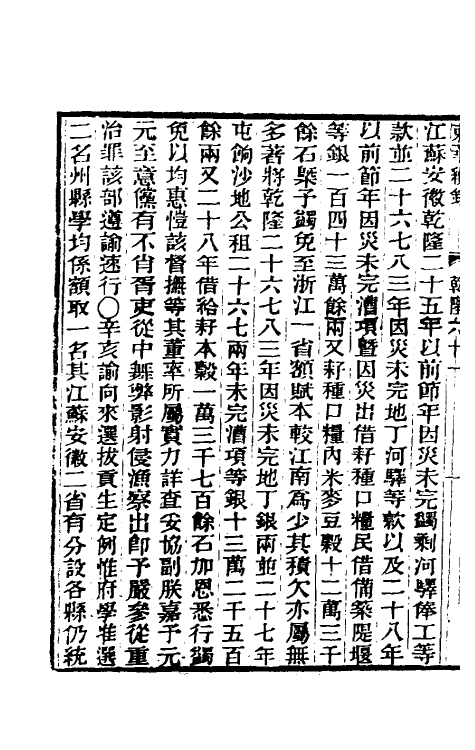 江蘇安徽乾隆二十五年以前節年因災未完蠲剩河驛俸工等
款並二十六七八三年因災未完地丁河驛等款以及二十八年
以前節年因災未完漕項暨因災出借籽種口糧民借備築隄堰
等銀一百四十三萬餘兩又籽種口糧內米麥豆穀十二萬三千
餘石槩予蠲免至浙江一省額賦本較江南爲少其積欠亦屬無
多著將乾隆二十六七八三年因災未完地丁銀兩並二十七年
屯餉沙地公租二十六七兩年未完漕項等銀十三萬二千五百
餘兩又二十八年借給籽本穀一萬三千七百餘石加恩悉行蠲
免以均惠愷該督撫等其董率所屬實力詳查妥協副朕嘉予元
元至意儻有不肖胥吏從中舞弊影射侵漁察出卽予嚴參從重
治罪該部遵諭速行〇辛亥諭向來選拔貢生定例惟府學准選
二名州縣學均係額取一名其江蘇安徽二省有分設各縣仍統